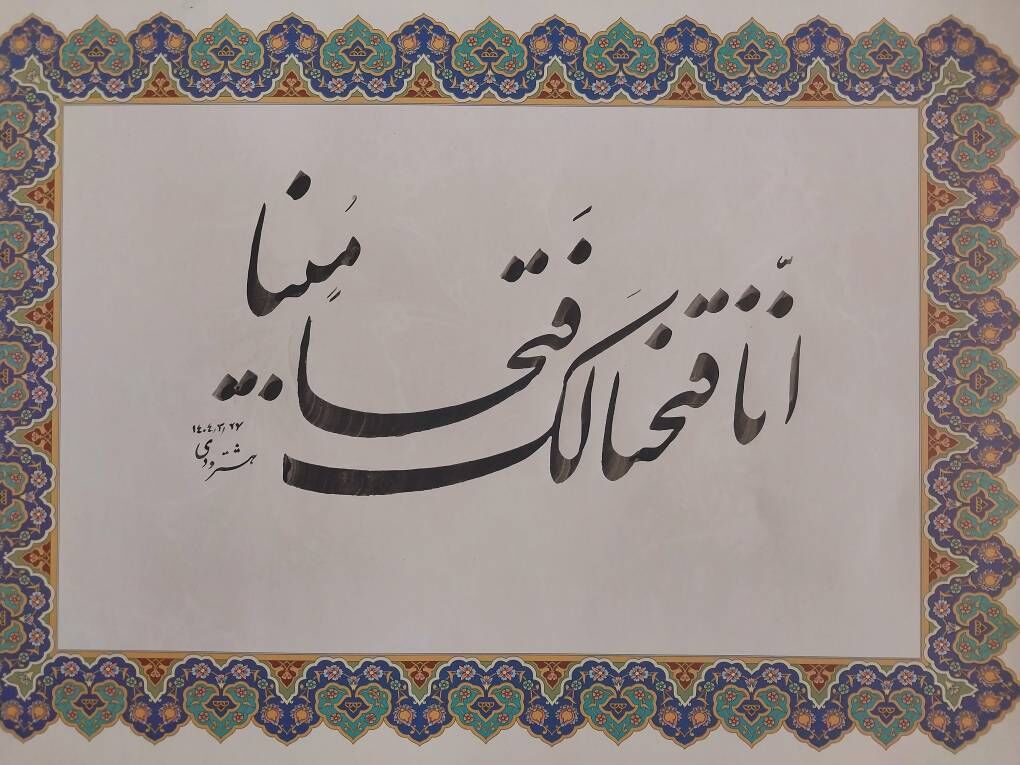 انّا فتحنا لکَ فَتحا مُبِینا
۱۴۰۴/۳/۲۷
هشترودی